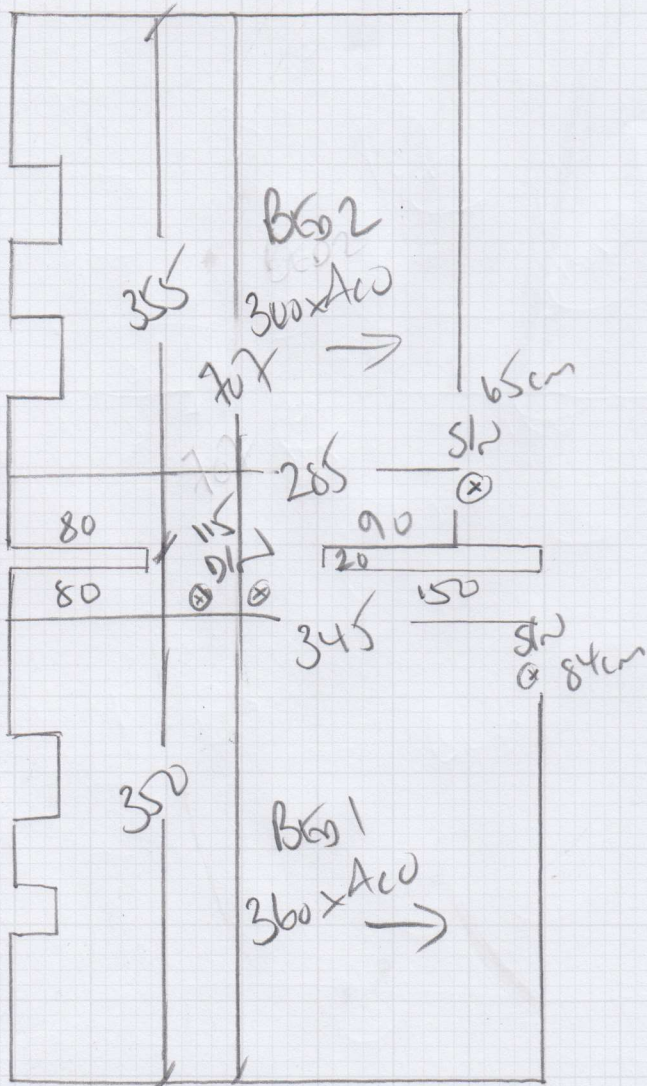 BED2
355
300xAco
707
65cm
S/N
285
80
115
90
D/N
20
80
150
345
S/N
84cm
350
BED1
360xAco